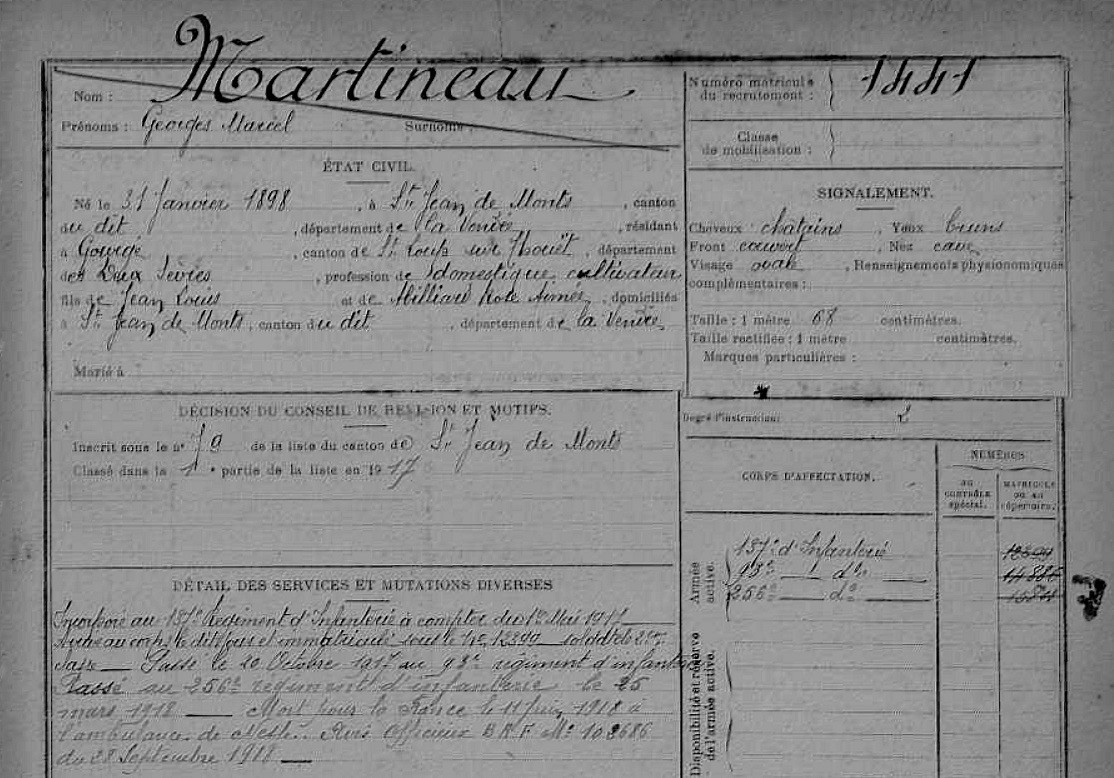 Nom : Martineau
Prénoms : Georges Marcel Surnoms :
Numéro matricule du recrutement : 1441
Classe de mobilisation :
ÉTAT CIVIL.
Né le 31 Janvier 1898, à St Jean de Monts, canton
du dit, département de la Vendée, résidant
à Gourgé, canton de St Loup sur Thouët, département
des Deux Sèvres, profession de domestique cultivateur
fils de Jean Louis et de Milliard Rose Aimée, domiciliés
à St Jean de Monts, canton du dit, département de la Vendée
Marié à
SIGNALEMENT.
Cheveux chatains, Yeux bruns
Front couvert, Nez cave
Visage ovale, Renseignements physionomiques
complémentaires :
Taille : 1 mètre 68 centimètres.
Taille rectifiée : 1 mètre centimètres.
Marques particulières :
DÉCISION DU CONSEIL DE REVISION ET MOTIFS.
Inscrit sous le no 79 de la liste du canton de St Jean de Monts
Classé dans la 1e partie de la liste en 1917
Degré d'instruction: 2
CORPS D'AFFECTATION.
NUMÉROS
au contrôle spécial.
matricule ou au répertoire.
Armée active.
137e d'Infanterie 12399
93e — do — 14886
256e — do —
Disponibilité et réserve de l'armée active.
DÉTAIL DES SERVICES ET MUTATIONS DIVERSES
Incorporé au 137e Régiment d'Infanterie à compter du 1er Mai 1917 —
Arrivé au corps le dit jour et immatriculé sous le No 12399 soldat de 2me
classe — Passé le 20 Octobre 1917 au 93e régiment d'infanterie
Passé au 256e régiment d'infanterie le 25
mars 1918 — Mort pour la France le 11 Juin 1918 à
l'ambulance de Avis Officieux B R F No 10 2686
du 28 Septembre 1918 —